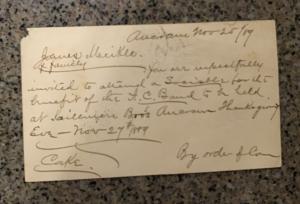 Anawam Nov 25/89
James Meikle.
& family
You are respectfully
invited to attend a Sociable for the
benefit of the F. C. Band to be held
at Bros Anawam Thanksgiving
Eve - Nov - 27th 1889
Cake.
By order of Com